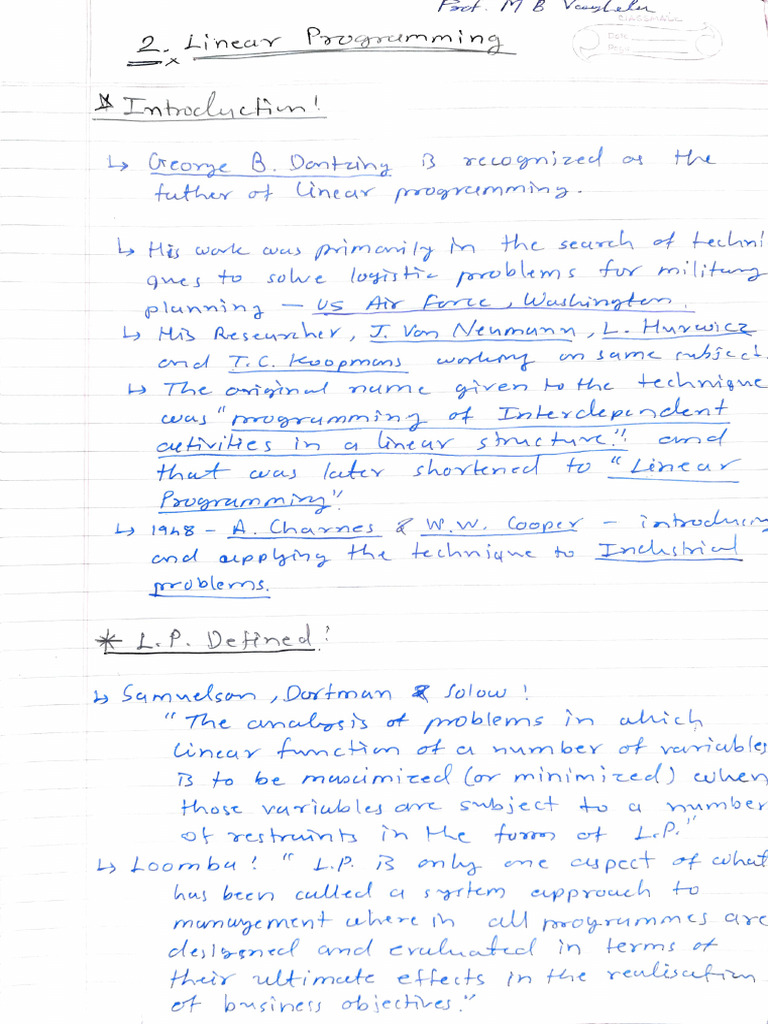 Prof. M B
classmate
Date
Page
2. Linear Programming
* Introduction:
↳ George B. Dantzing is recognized as the
futher of linear programming.
↳ His work was primarily in the search of techni
ques to solve logistic problems for military
planning – US Air Force, Washington.
↳ His Researcher, J. Von Neumann, L. Hurwicz
and T.C. Koopmans working on same subject.
↳ The original name given to the technique
was "programming of Interdependent
activities in a linear structure." and
that was later shortened to "Linear
Programming".
↳ 1948 – A. Charnes & W.W. Cooper – introducing
and applying the technique to Industrial
problems.
* L.P. Defined:
↳ Samuelson, Dorfman & Solow:
"The analysis of problems in which
linear function of a number of variables
is to be maximized (or minimized) when
those variables are subject to a number
of restraints in the form of L.P."
↳ Loomba: "L.P. is only one aspect of what
has been called a system approach to
management where in all programmes are
designed and evaluated in terms of
their ultimate effects in the realisation
of business objectives."